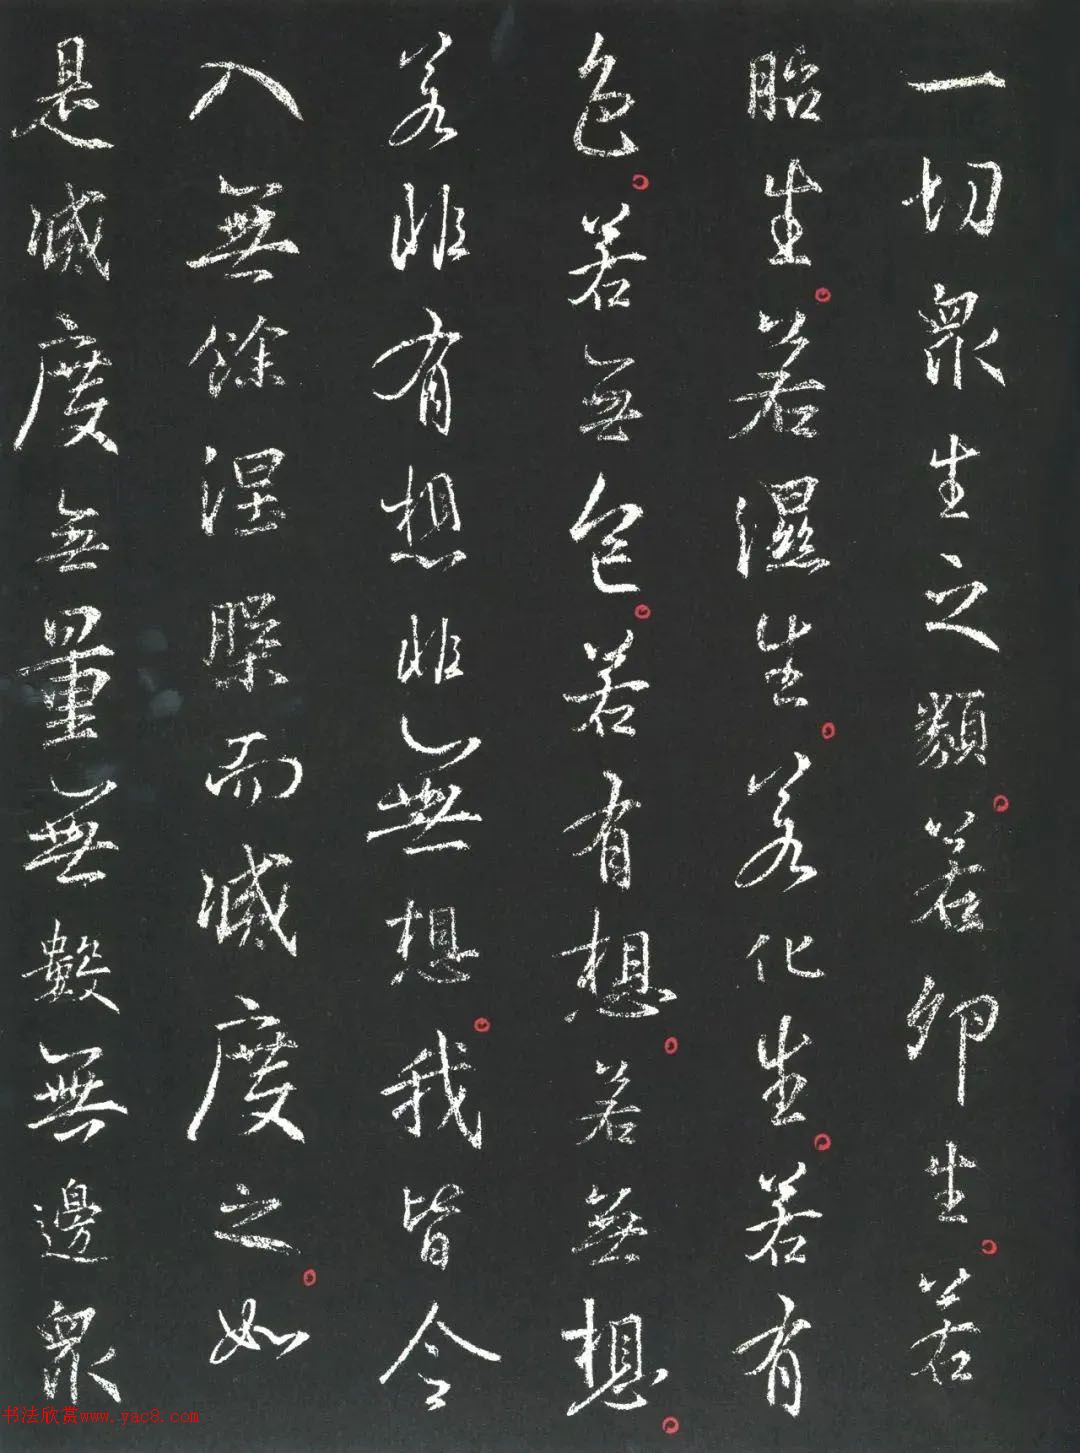 一切眾生之類。若卵生。若
胎生。若濕生。若化生。若有
色。若無色。若有想。若無想。
若非有想非無想。我皆令
入無餘涅槃而滅度之。如
是滅度無量無數無邊眾
书法欣赏www.yac8.com